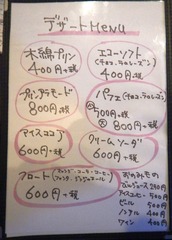 デザートMENU
木綿プリン
400円+税
エコーソフト
(チョコ・ラムレーズン)
400円+税
プリンアラモード
800円+税
パフェ(チョコ・ラムレーズン)
500円+税
800円+税
アイスココア
600円+税
クリームソーダ
600円+税
フロート
600円+税
おのみもの
オレンジジュース 250円
アイスコーヒー 500円
ビール 500円
ノンアル 400円
ワイン 400円